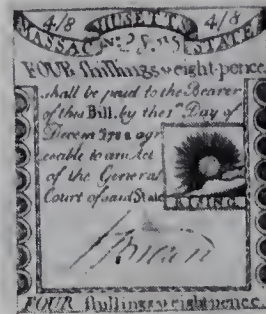 4/8 HUSETTS 4/8
MASSAC STATE
FOUR Shillings & eight-pence.
shall be paid to the Bearer
of this Bill, by the 1st Day of
Decem agr
eeable to an Act
of the General
Court of said State
RISING
FOUR Shillings & eight-pence.